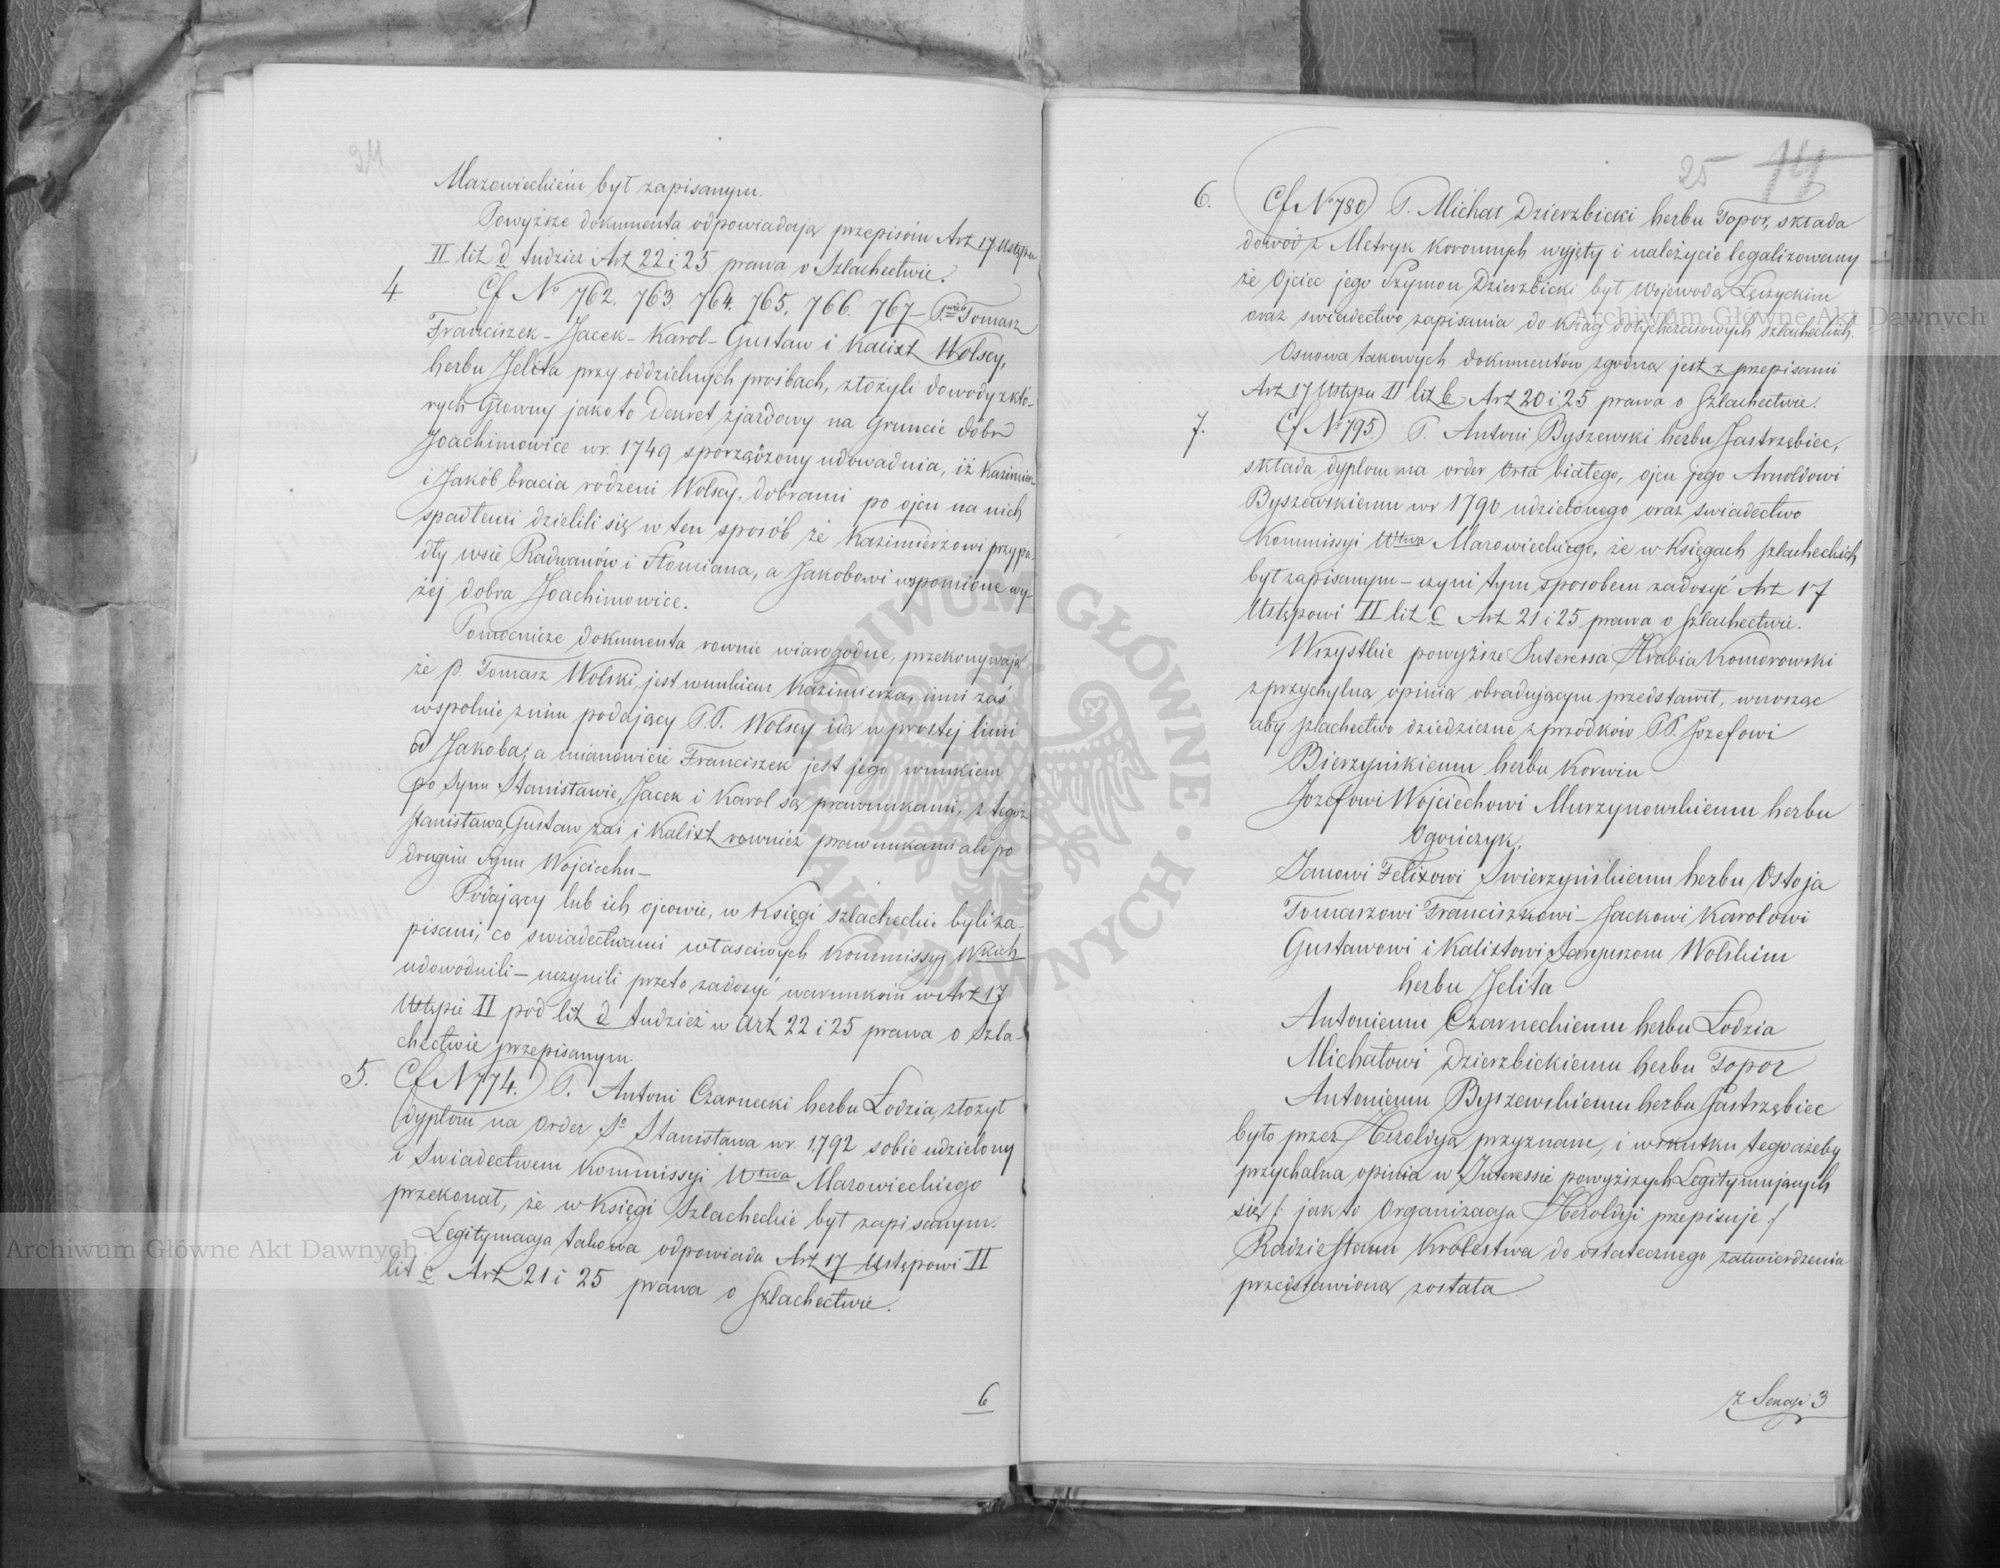 24
Mazowieckiém był zapisanym.
Powyższe dokumenta odpowiadają przepisóm Art 17 Ustępu
II lit d tudzież Art 22 i 25 prawa o Szlachectwie.
4 Cf No 762. 763. 764. 765. 766. 767 – P.wie Tomasz
Franciszek – Jacek – Karol – Gustaw i Kalixt Wolscy,
herbu Jelita przy oddzielnych prośbach, złożyli dowody z któ-
rych Główny jako to Dekret zjazdowy na Gruncie dóbr
Joachimowice w r. 1749 sporządzony udowadnia, iż Kazimierz
i Jakób bracia rodzeni Wolscy, dobrami po ojcu na nich
spadłemi dzielili się w ten sposób że Kazimierzowi przypa-
dły wsie Radwanów i Słomiana, a Jakobowi wspomione wy-
żéj dobra Joachimowice.
Pomocnicze dokumenta rownie wiarogodne, przekonywają
że p. Tomasz Wolski, jest wnukiem Kazimierza, inni zaś
wspolnie z nim podający P.P. Wolscy idą w prostéj linii
od Jakoba; a mianowicie Franciszek jest jego wnukiem
po Synu Stanisławie, Jacek i Karol są prawnukami, z tegoż
Stanisława, Gustaw zaś i Kalixt rownież prawnukami ale po
drugim Synu Wojciechu –
Podający lub ich ojcowie, w Księgi szlacheckie byli za-
pisani; co swiadectwami własciwych Kommissyj Wkich
udowodnili – uczynili przeto zadosyć warunkóm w Art 17
Ustępie II pod lit d tudzież w Art 22 i 25 prawa o Szla-
chectwie przepisanym.
5. Cf N 774. P. Antoni Czarnecki herbu Łodzia, złożył
dyplom na Order So Stanisława w r. 1792 sobie udzielony
i Swiadectwem Kommissyi Wtwa Mazowieckiego
przekonał, że w Księgi Szlacheckie był zapisanym.
Legitymacya takowa odpowiada Art 17 Ustępowi II
lit c Art 21 i 25 prawa o Szlachectwie.
6
25 14
6. Cf No 780 P. Michał Dzierzbicki herbu Topor, składa
dowód z Metryk Koronnych wyjęty i należycie legalizowany
że Ojciec jego Szymon Dzierzbicki był Wojewodą Łęczyckim
oraz swiadectwo zapisania do ksiąg dotychczasowych szlacheckich.
Osnowa takowych dokumentów zgodna jest z przepisami
Art 17 Ustępu II lit b Art 20 i 25 prawa o Szlachectwie.
7. Cf No 795 P. Antoni Byszewski herbu Jastrzębiec,
składa dyplom na order Orła białego, ojcu jego Arnoldowi
Byszewskiemu w r 1790 udzielonego oraz swiadectwo
Kommissyi Wtwa Mazowieckiego, że w Księgach szlacheckich
był zapisanym – czyni tym sposobem zadosyć Art 17
Ustępowi II lit c Art 21 i 25 prawa o szlachectwie.
Wszystkie powyższe Interessa Hrabia Komorowski
z przychylną opinią obradującym przedstawił, wnosząc
aby szlachectwo dziedziczne z przodków PP. Jozefowi
Bierzyńskiemu herbu Korwin
Jozefowi Wojciechowi Murzynowskiemu herbu
Ogończyk.
Janowi Felixowi Swierzyńskiemu herbu Ostoja
Tomaszowi Franciszkowi – Jackowi Karolowi
Gustawowi i Kalixtowi Jarguszom Wolskim
herbu Jelita
Antoniemu Czarneckiemu herbu Łodzia
Michałowi Dzierzbickiemu herbu Topor
Antoniemu Byszewskiemu herbu Jastrzębiec
było przez Heroldyą przyznane, i w skutku tego ażeby
przychalna opinia w Interessie powyższych Legitymujących
się /: jak to Organizacya Heroldyi przepisuje :/
Radzie Stanu Królestwa do ostatecznego zatwierdzenia
przedstawioną została
z Sessyi 3
Archiwum Główne Akt Dawnych
Archiwum Główne Akt Dawnych
ARCHIWUM GŁÓWNE • AKT DAWNYCH •